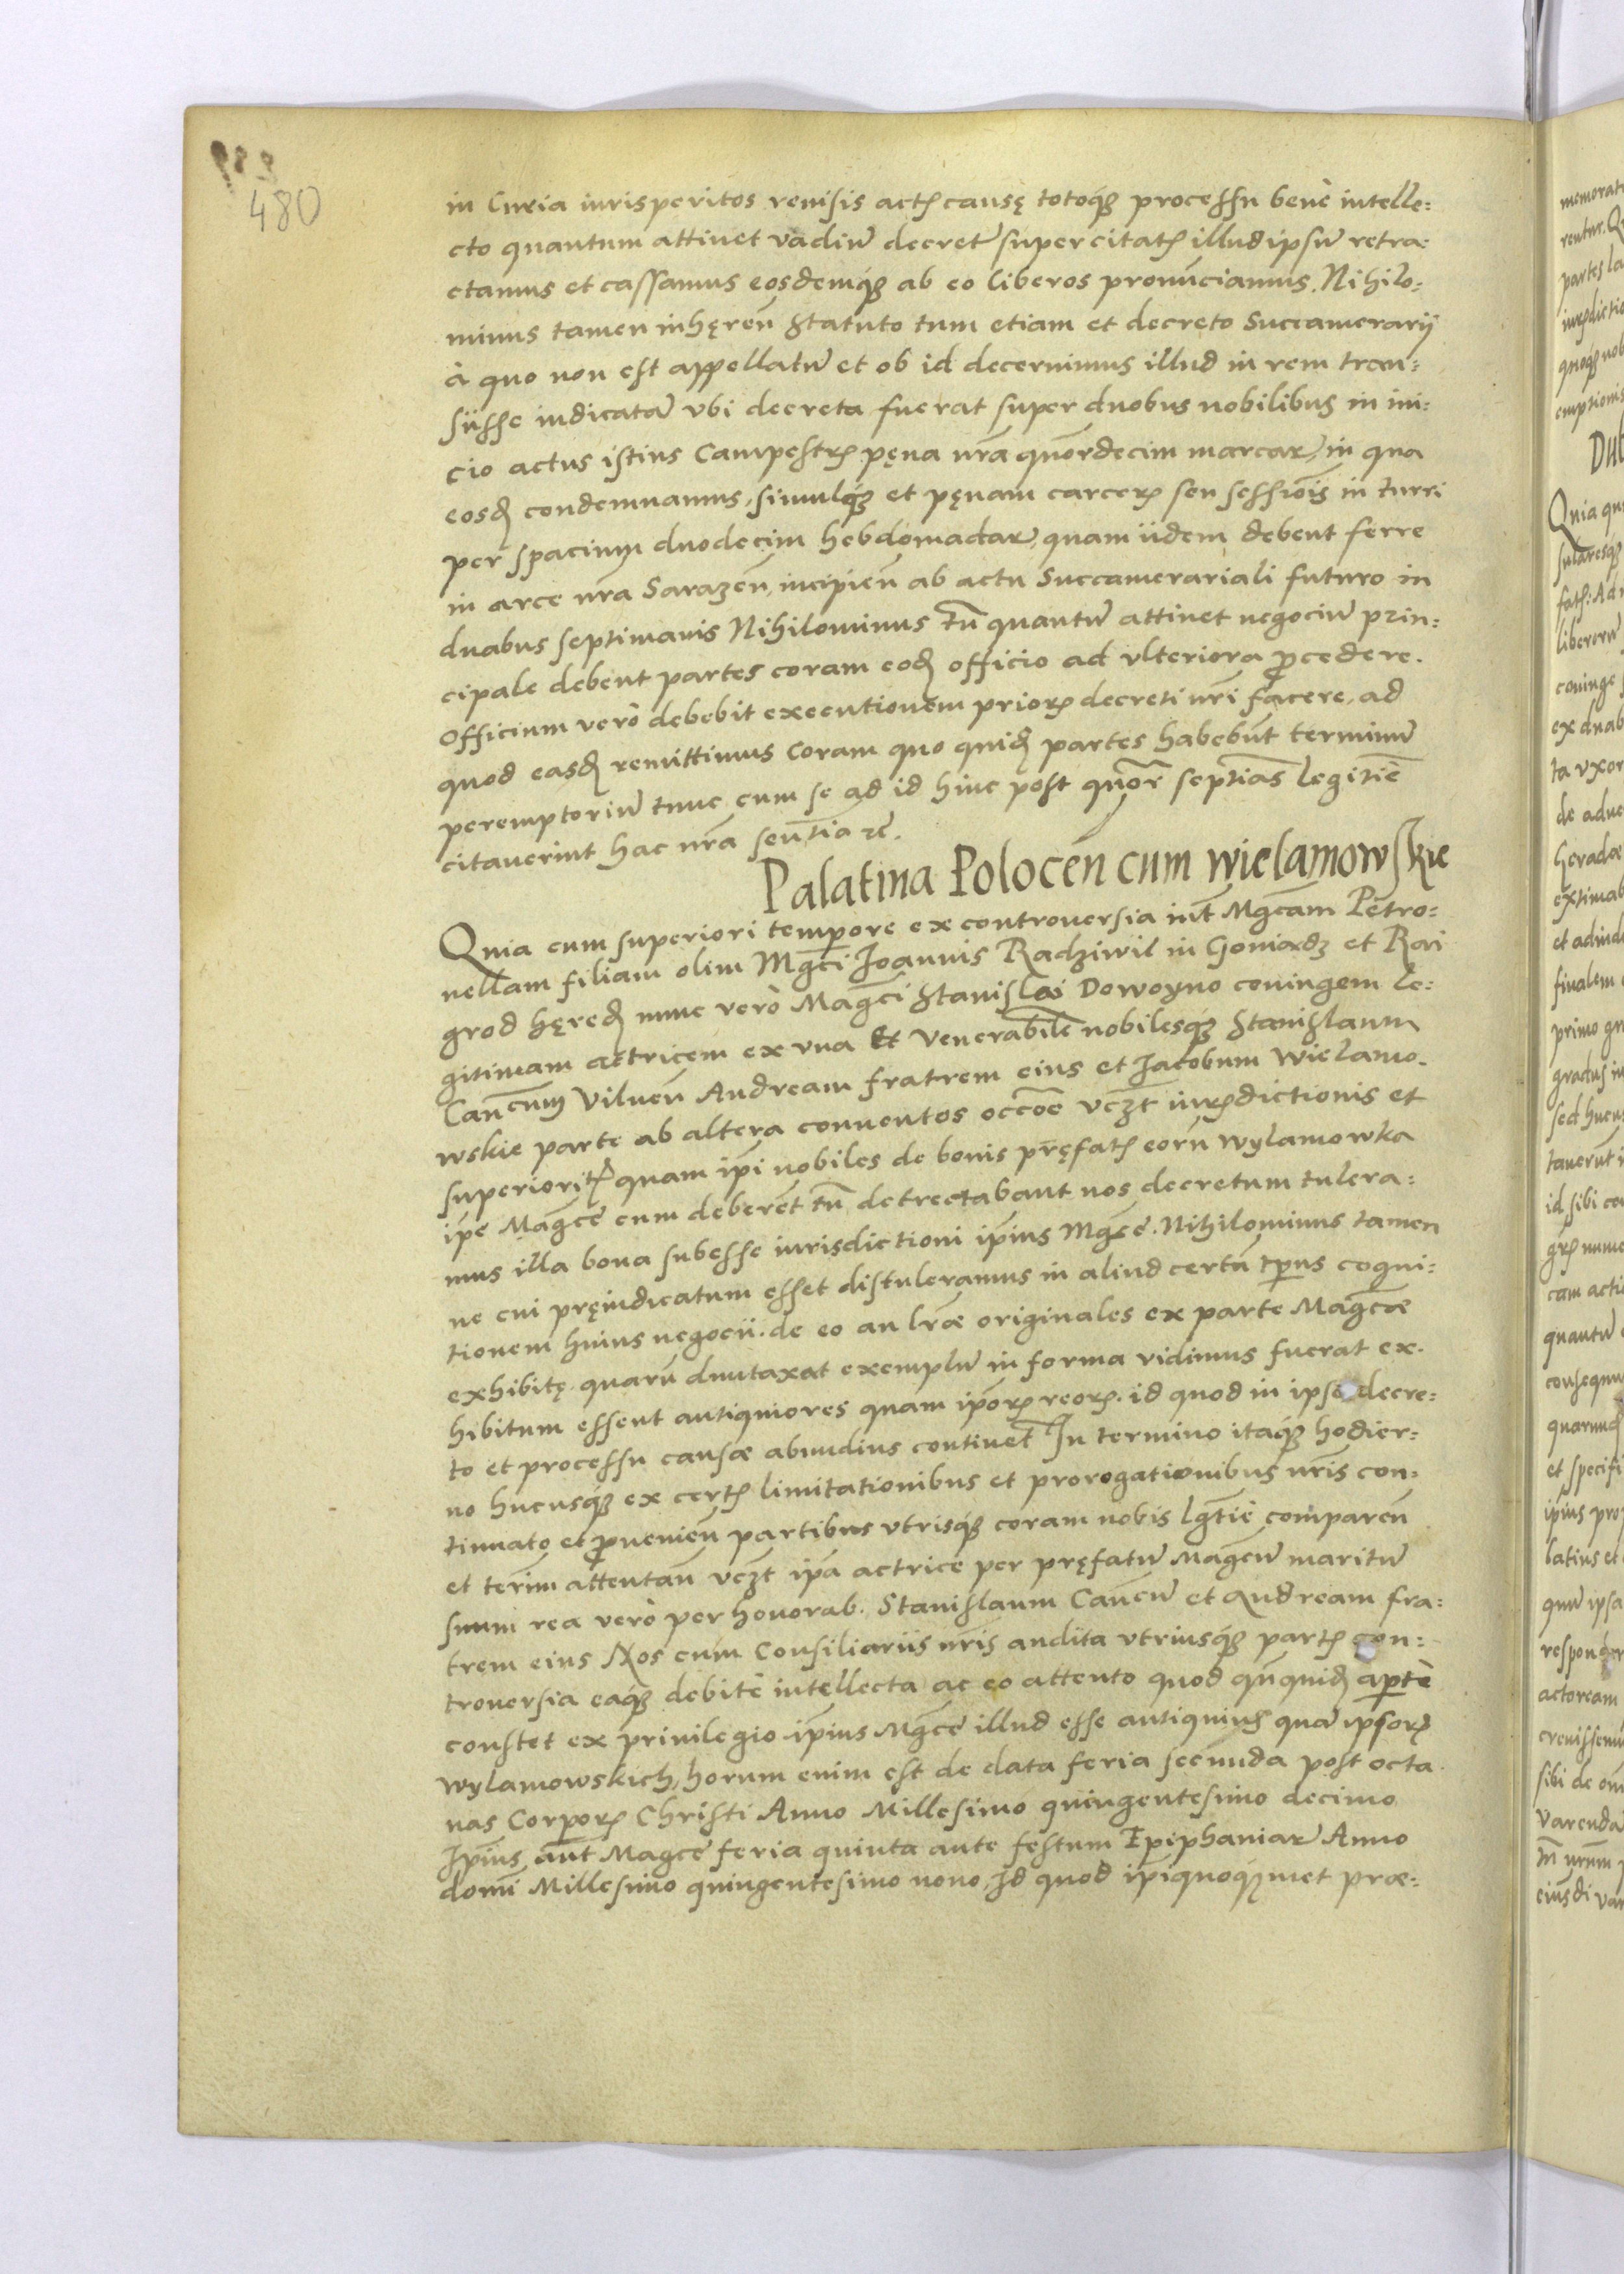 480
in Curia iurisperitos reuisis actꝭ causę totoqꝫ processu bene intelle:
cto quantum attinet vadiū decretū supercitatꝭ illud ipsū retra:
ctamus et cassamus eosdemqꝫ ab eo liberos pronunciamus. Nihilo:
minus tamen inhęreñ Statuto tum etiam et decreto Succamerarij
à quo non est appellatū et ob id decernimus illud in rem tran:
siisse iudicatā vbi decreta fuerat super duobus nobilibus in ini:
cio actus istius Campestrꝭ pęna nr̃a quordecim marcaꝝ in qua
eosđ condemnamus, simulqꝫ et pęnam carcerꝭ seu sessiōis in turri
per spacium duodecim hebdomadaꝝ, quam iidem debent ferre
in arce nr̃a Sarazeñ, incipieñ ab actu Succamerariali futuro in
duabus septimanis Nihilominus tñ quantū attinet negociū prin:
cipale debent partes coram eođ officio ad vlteriora ꝓcedere.
Officium verò debebit executionem priorꝭ decreti nr̃i facere, ad
quod easđ remittimus coram quo quiđ partes habebūt terminū
peremptoriū tunc cum se ad id hinc post quōr septiās legitiē
citauerint hac nr̃a senn̄tia etc̄.
Palatina Poloceñ cum wielamowskie
Quia cum superiori tempore ex controuersia int̃ Mgcām Petro:
nellam filiam olim Mgc̄i Joannis Radziwil in Goniadz et Rai
grod hęređ nunc verò Magc̄i Stanislai Dowoyno coniugem le:
gitimam actricem ex vna Et Venerabilē nobilesqꝫ Stanislaum
Canc̄um Vilneñ Andream fratrem eius et Jacobum Wielamo.
wskie parte ab altera conuentos occōe vcꝫt iurꝭdictionis et
superioritꝭ quam ip̄i nobiles de bonis pręfatꝭ eorū wylamowka
ip̄e Magcē cum deberēt tñ detrectabant nos decretum tulera:
mus illa bona subesse iurisdictioni ip̄ius Mgcē. Nihilominus tamen
ne cui pręiudicatum esset distuleramus in aliud certū tp̄us cogni:
tionem huius negocii. de eo an lr̃æ originales ex parte Magcæ
exhibitę. quarū duntaxat exemplū in forma vidimus fuerat ex.
hibitum essent antiquiores quam ip̄orꝭ reorꝭ. id quod in ipso decre:
to et processu causæ abundius continet̃ In termino itaqꝫ hodier:
no hucusqꝫ ex certꝭ limitationibus et prorogationibus nr̃is con:
tinuato et ꝓuenieñ partibus vtrisqꝫ coram nobis lgtiē compareñ
et term̄ attentañ vcꝫt ip̄a actrice per pręfatū Magcū maritū
suum rea verò per honorab. Stanislaum Canc̄ū et Andream fra:
trem eius Nos cum Consiliariis nr̃is audita vtriusqꝫ partꝭ con:
trouersia eaqꝫ debitè intellecta ac eo attento quod qñquiđ apertè
constet ex priuilegio ip̄ius Mgcē illud esse antiquius quā ipsorꝭ
wylamowskich, horum enim est de data feria secunda post octa
uas Corporꝭ Christi Anno Millesimo quingentesimo decimo
Ip̄ius aūt Magcē feria quinta ante festum Epiphaniaꝝ Anno
domī Millesimo quingentesimo nono, Id quod ip̄iquoqꝫ met præ: